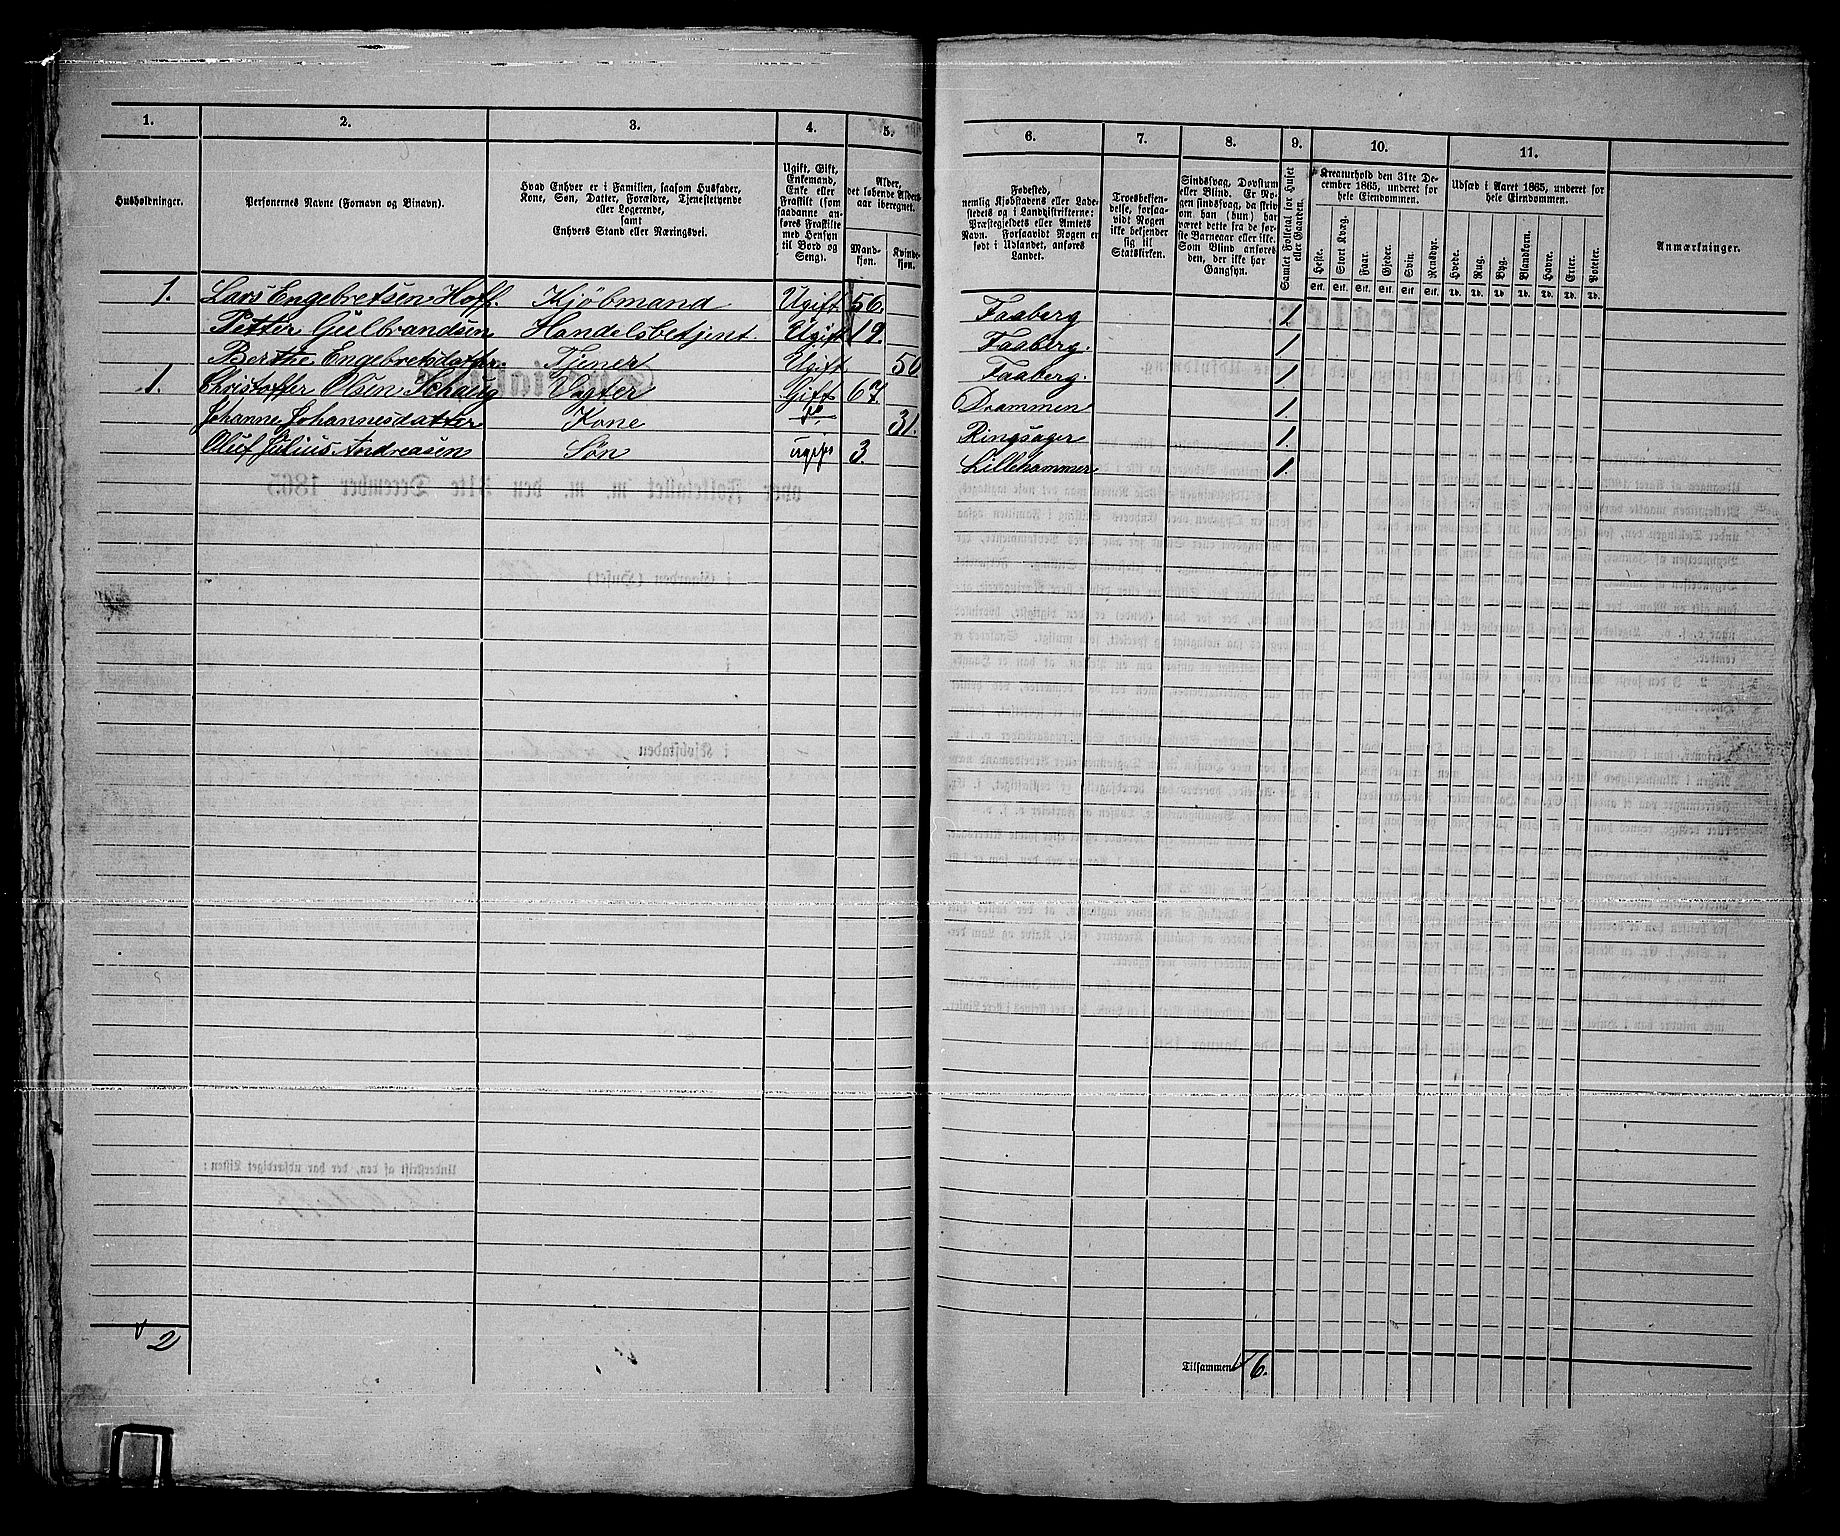 1. 2. 3. 4. 5. 6. 7. 8. 9. 10. 11.
Husholdninger.
Personernes Navne (Fornavn og Tilnavn).
Hvad Enhver er i Familien, saasom Husfader,
Kone, Søn, Datter, Forældre, Tjenestetyende
eller Logerende,
samt
Enhvers Stand eller Næringsvei.
Ugift, Gift,
Enkemand,
Enke eller
Fraskilt (som
saadanne an-
føres Fraskilte
med Hensyn
til Bord og
Seng).
Alder,
det løbende Alders-
aar iberegnet.
Mand-
kjøn.
Kvinde-
kjøn.
Fødested,
nemlig Kjøbstadens eller Lade-
stedets og i Landdistrikterne:
Præstegjeldets eller Amtets
Navn. Forsaavidt Nogen er
født i Udlandet, anføres
Landet.
Troesbekjen-
delse, forsaa-
vidt Nogen
ikke bekjender
sig til
Statskirken.
Sindssvag, Døvstum
eller Blind. Er No-
gen sindssvag, da skriv
om han (hun) har
været dette fra de før-
ste Barneaar eller ikke.
Som Blind anføres
den, der ikke har
Gangsyn.
Samlet Folketal for Huset
eller Gaarden.
Kreaturhold den 31te De-
cember 1865, underet for
hele Eiendommen.
Heste. Stort Kvæg. Faar. Gjeder. Svin. Rensdyr.
Stk. Stk. Stk. Stk. Stk. Stk.
Udsæd i Aaret 1865, underet for
hele Eiendommen.
Hvede. Rug. Byg. Blandkorn. Havre. Erter. Poteter.
Td. Td. Td. Td. Td. Td. Td.
Anmærkninger.
1. Lars Engebretsen Hoff. Kjøbmand Ugift 56. Faaberg 1
Petter Gulbrandsen Handelsbetjent. Ugift 19. Faaberg. 1
Berthe Engebretsdatter Tjener Ugift 50 Faaberg. 1
1. Christoffer Olsen Vægter Gift 67. Drammen 1.
Johanne Johannesdatter Kone do 31. Ringsager 1.
Oluf Julius Andreasen Søn ugift 3. Lillehammer 1.
2
Tilsammen 6.